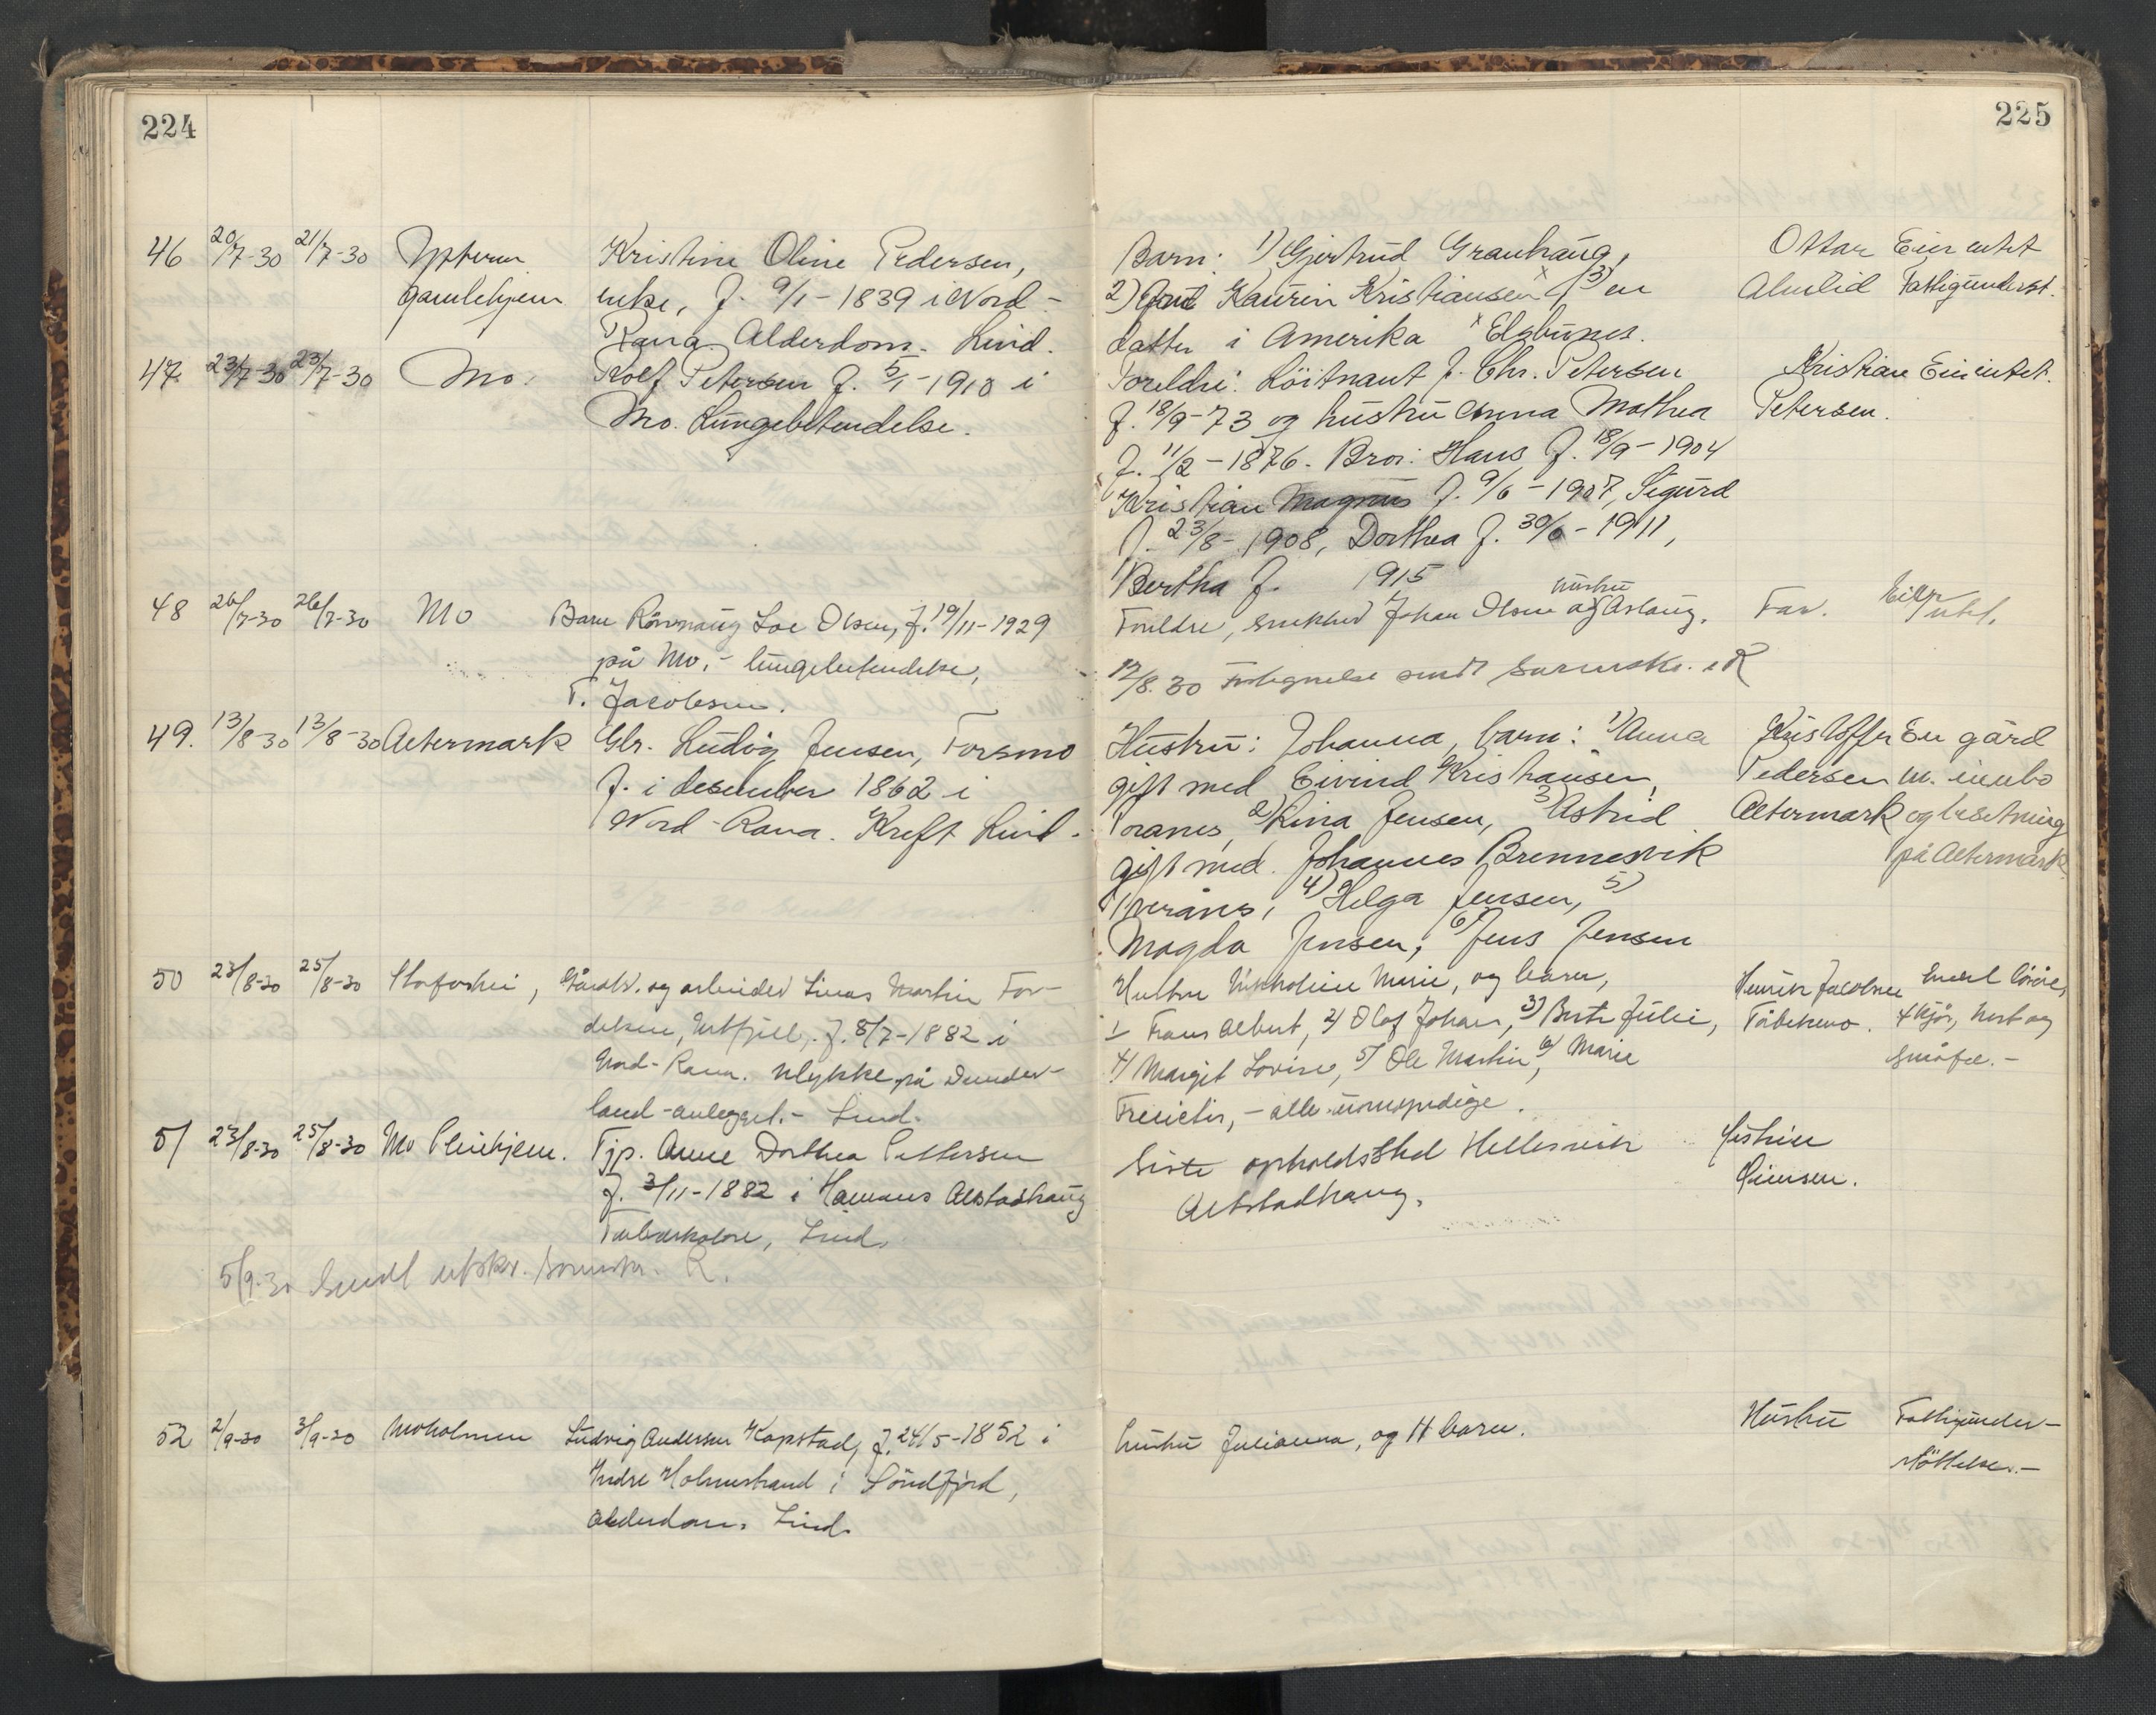 224
225
46 20/7-30 21/7-30 Ytteren Kristine Oline Pedersen, Barn: 1) Gjertrud Grauhaug, Ottar Ein entet
gamlehjem enke, f. 9/1-1839 i Nord- 2) Kaurin Kristiansen x 3) en Almlid Fattigunderst.
Rana. Alderdom. Lind. datter i Amerika x Elgbunes.
47 23/7-30 23/7-30 Mo. Rolf Petersen f. 5/1-1910 i Foreldre: Löitnant J. Chr. Petersen Kristian Ein entet.
Mo. Lungebetendelse. f. 18/9-73 og hustru Anna Mathea Petersen.
f. 11/2-1876. Bror: Hans f. 18/9-1904
Kristian Magnus f. 9/6-1907, Sigurd
f. 23/8-1908, Dorthea f. 30/6-1911,
Bertha f. 1915
48 26/7-30 26/7-30 Mo Barn Rönnaug Loe Olsen, f. 19/11-1929 Foreldre, snekker Johan Olsen og hustru Aslaug. Far.
på Mo. - lungebetendelse,
T. Jacobsen. 12/8.30 Fortegnelse sendt Sorenskr. i R
49. 13/8-30 13/8-30 Altermark Gbr. Ludvig Jensen, Forsmo Hustru: Johanna, barn: 1) Anna Kristoffer En gård
f. i desember 1862 i gift med Eivind Kristiansen, Pedersen m. innbo
Nord-Rana. Kreft Lind. 2) Rina Jensen, 3) Astrid Altermark og besetning
gift med Johannes Brennesvik på Altermark
4) Helga Jensen, 5)
Magda Jensen, 6) Jens Jensen
50 23/8-30 25/8-30 Storforshei, Gårdbr. og arbeider Linas Martin For- Hustru Nikoline Marie, og barn, Henrik Jacobsen
delsen, f. 8/7-1882 i 1/ Frans Albert, 2/ Olof Johan, 3/ Berte Julie, 4 kjör, hest og
Nord-Rana. Ulykke på Dunder- 4/ Margit Lovise, 5/ Ole Martin, 6/ Marie småfe. -
land-anlegget. - Lind. - alle umyndige.
51 23/8-30 25/8-30 Mo Pleiehjem. Tjp. Anne Dorthea Pettersen Siste opholdssted Hellesvik
f. 3/11-1882 i Alstadhaug Alstadhaug.
Tuberkolose, Lind.
5/9-30 Sendt utskr. Sorenskr. R.
52 2/9-30 3/9-30 Moholmen Ludvig Andersen Kopstad, f. 24/5-1852 i hustru Julianna, og 4 barn. Hustru Fattigunder-
Indre Holmestrand i Söndfjord, stöttelse. -
alderdom. Lind.